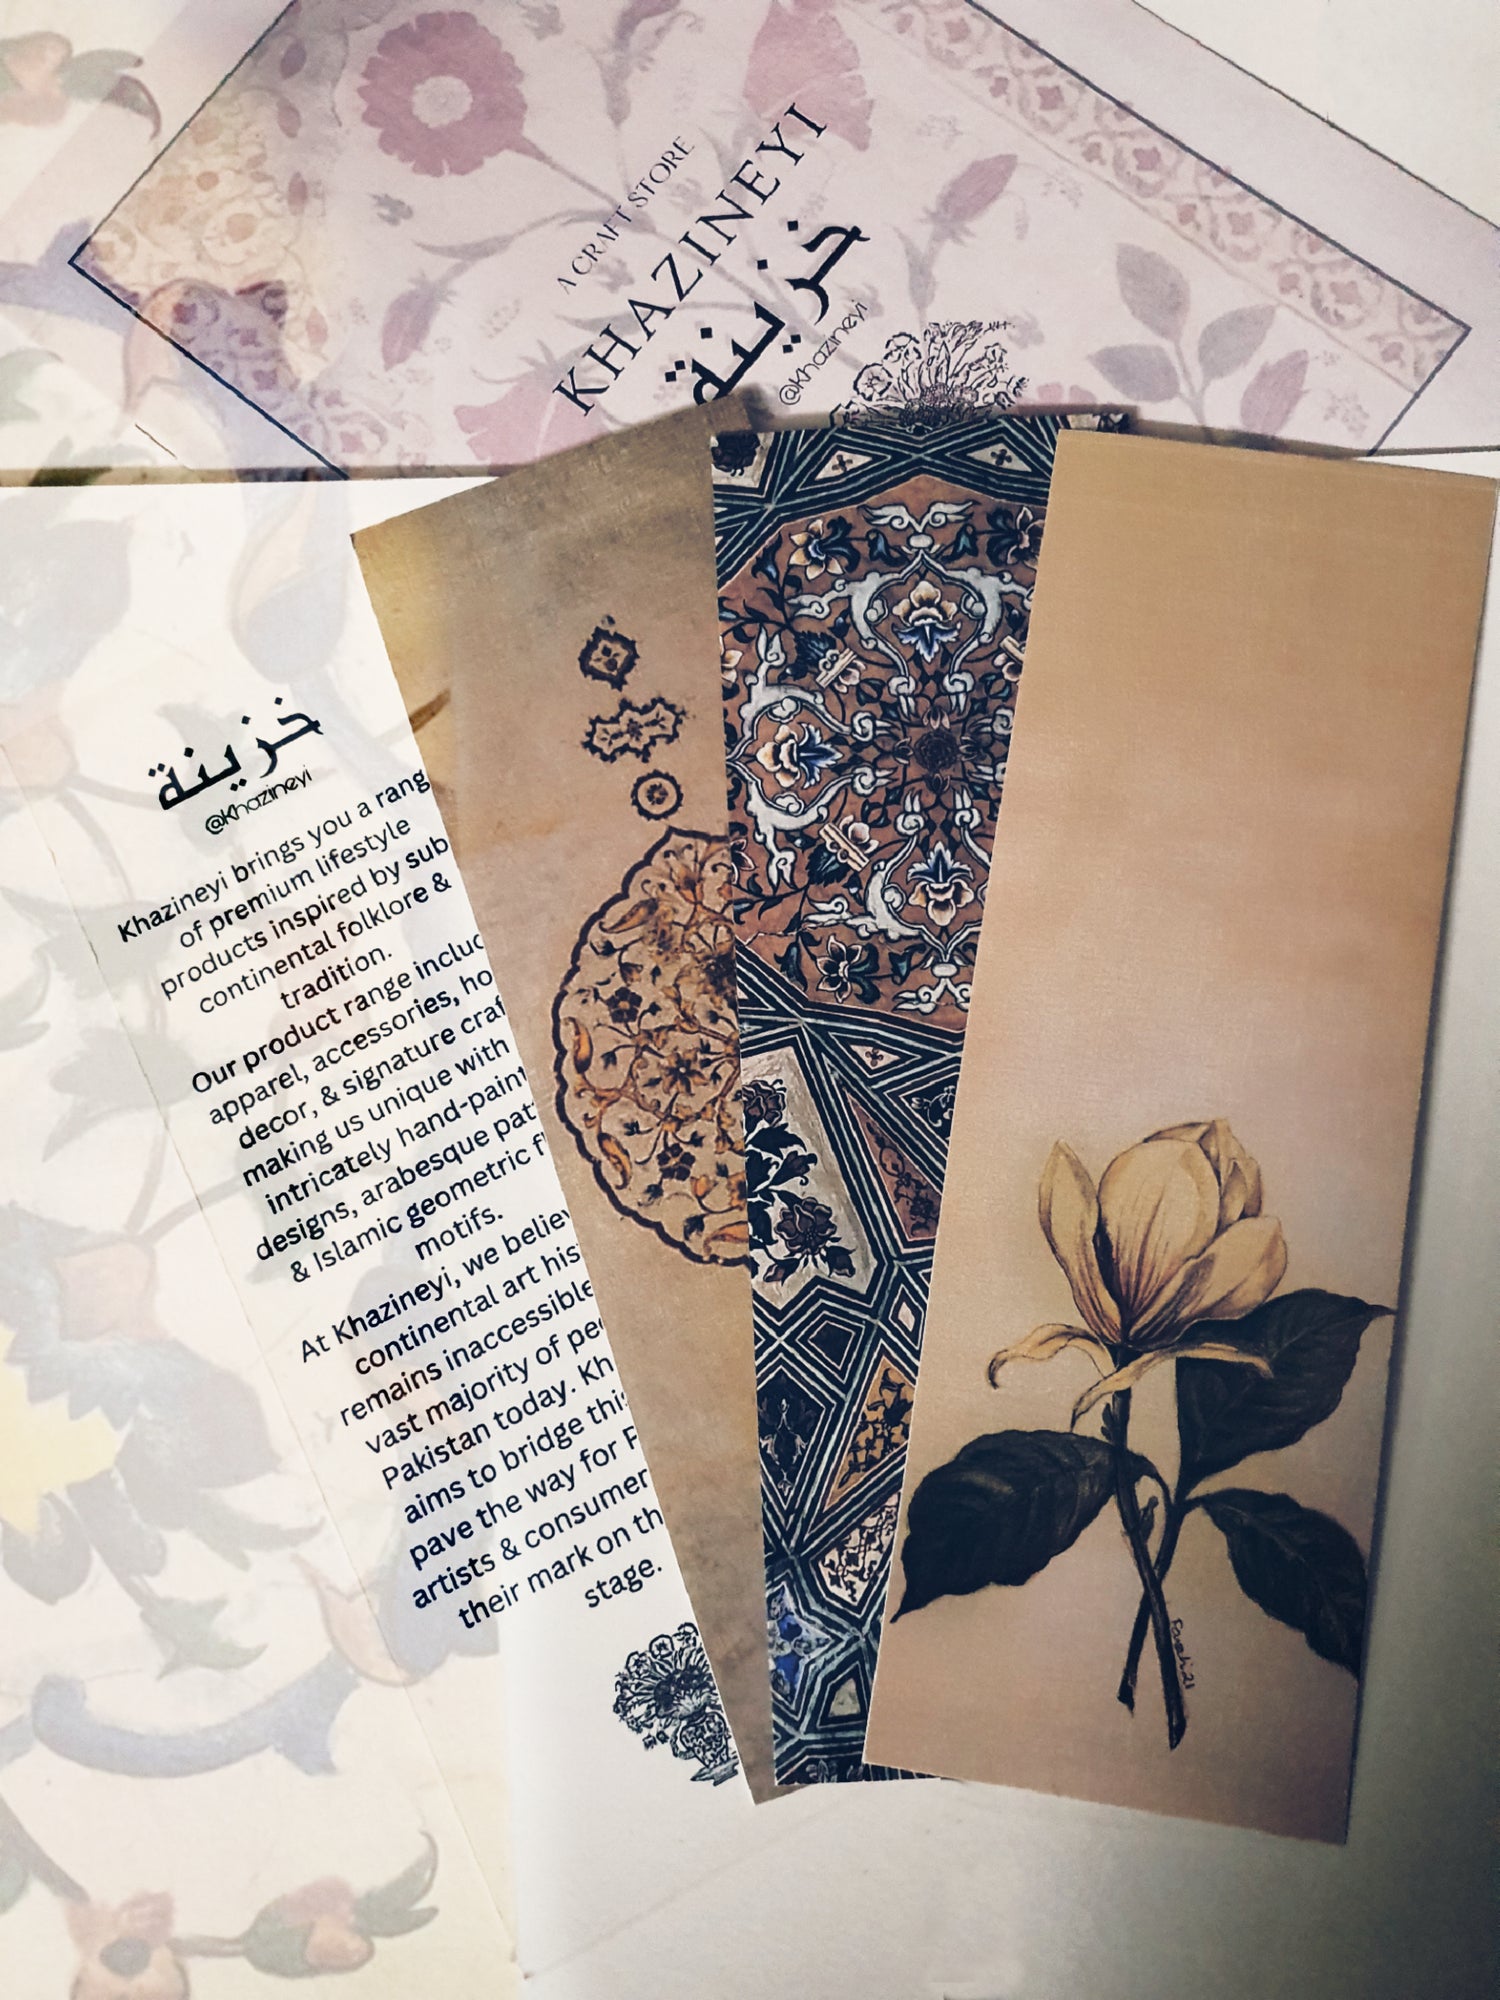 A CRAFT STORE
KHAZINEYI
خزينة
@khazineyi
خزينة
@khazineyi
Khazineyi brings you a rang
of premium lifestyle
products inspired by sub
continental folklore &
tradition.
Our product range includ
apparel, accessories, ho
decor, & signature craf
making us unique with
intricately hand-paint
designs, arabesque pat
& Islamic geometric f
motifs.
At Khazineyi, we believ
continental art his
remains inaccessible
vast majority of peo
Pakistan today. Kh
aims to bridge this
pave the way for P
artists & consumer
their mark on th
stage.